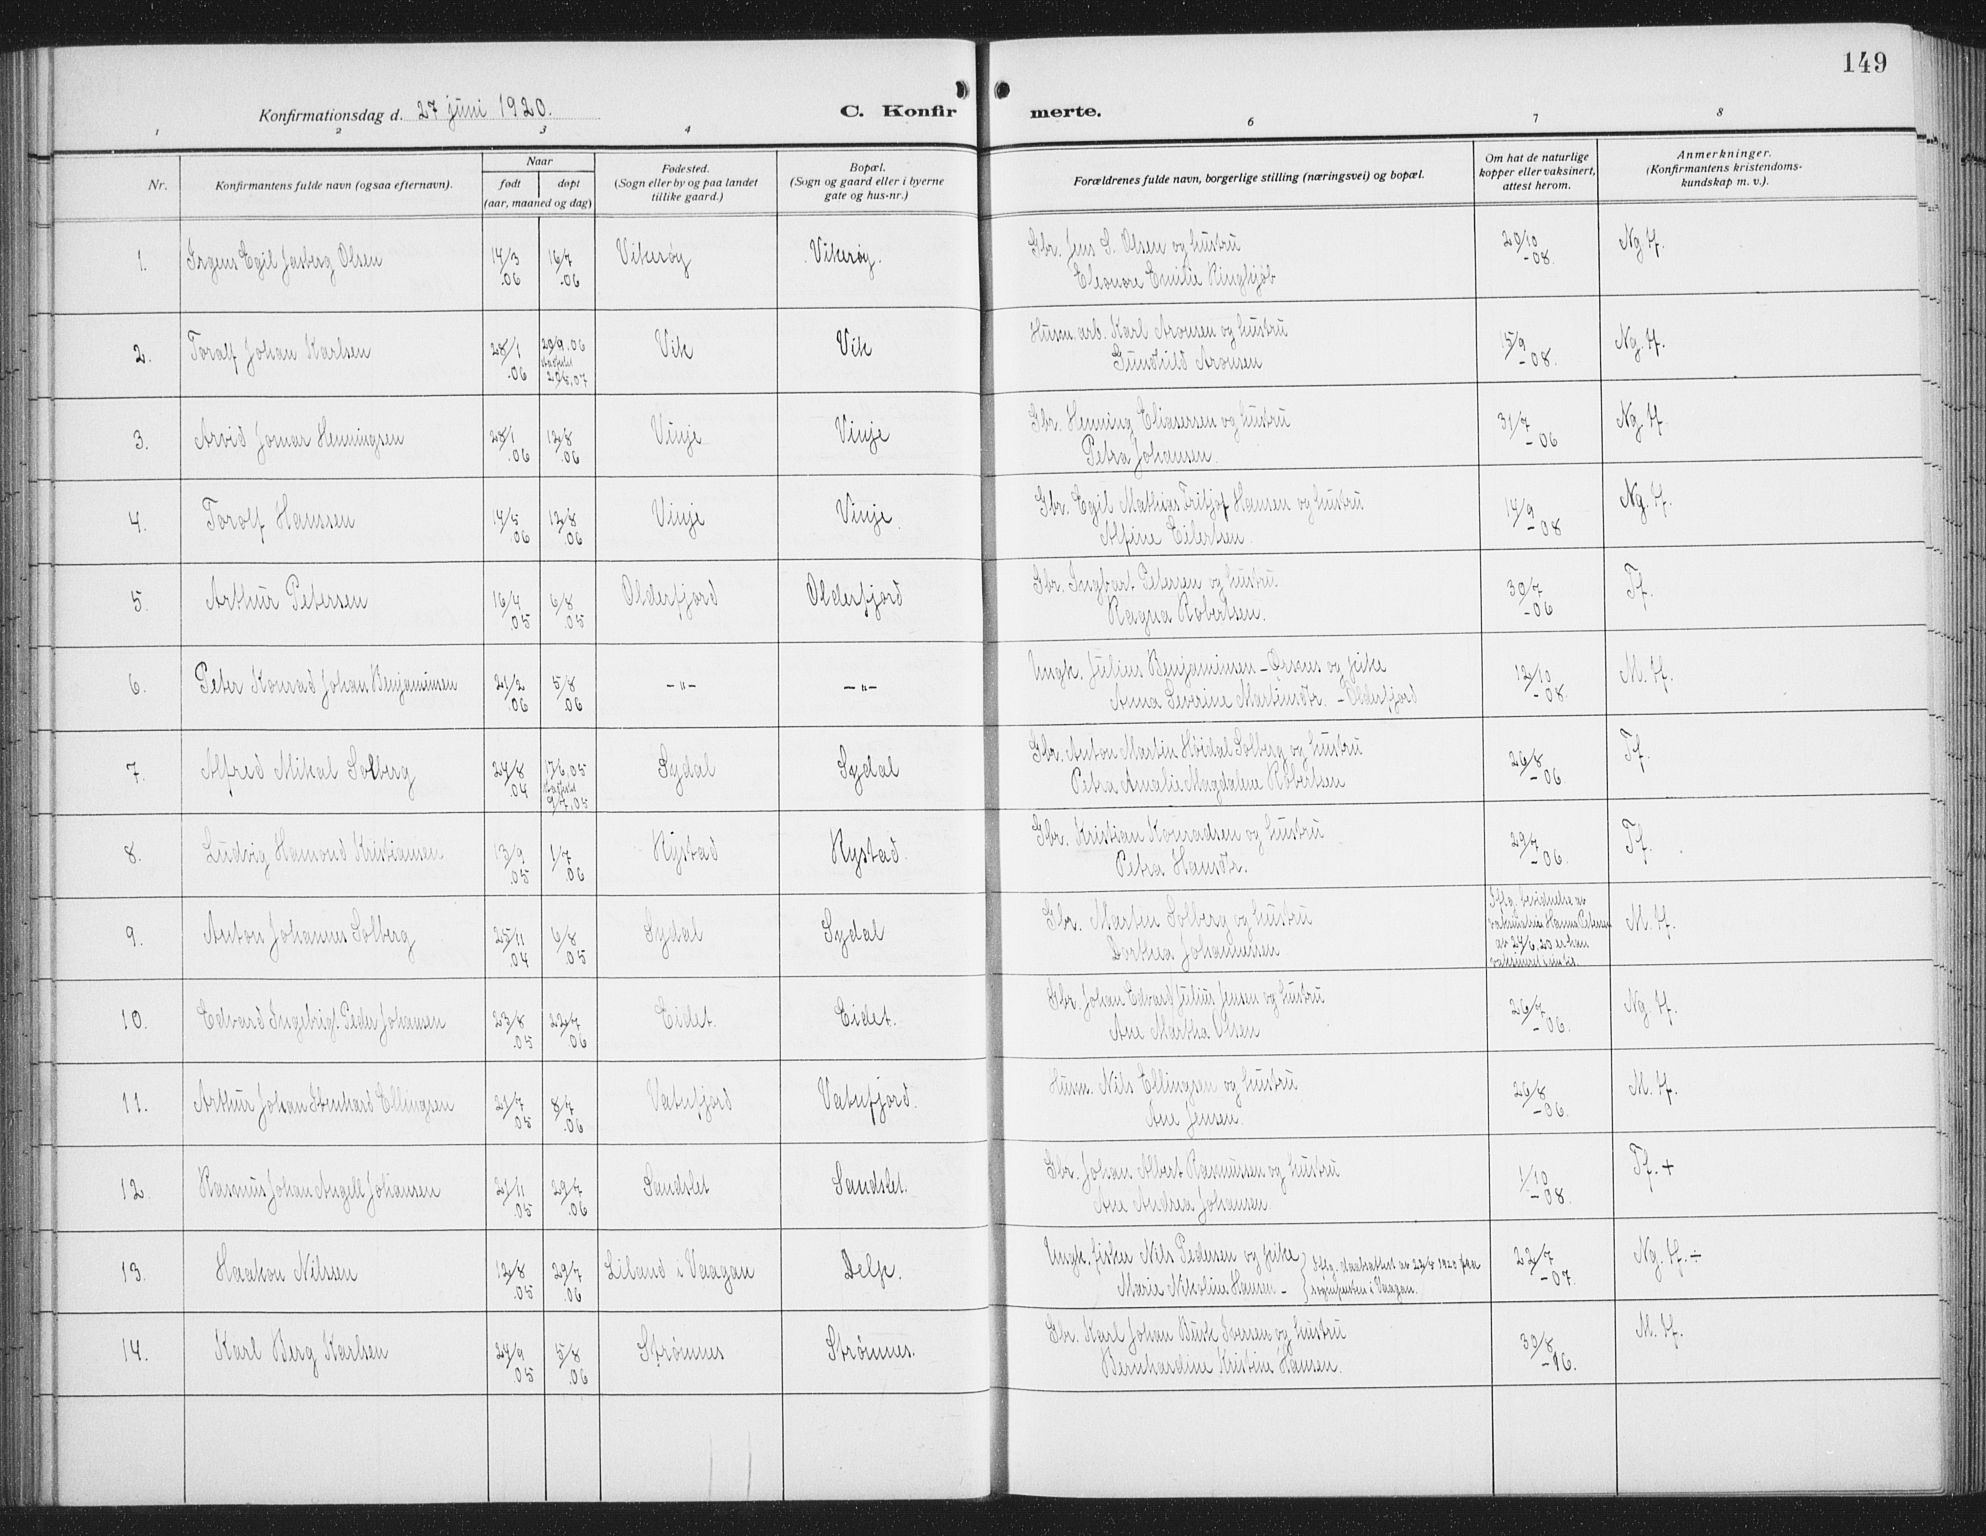 149
Konfirmationsdag d. 27 juni 1920.
C. Konfir merte.
1 2 3 4 6 7 8
Nr.
Konfirmantens fulde navn (ogsaa efternavn).
Naar
født døpt
(aar, maaned og dag)
Fødested.
(Sogn eller by og paa landet
tillike gaard.)
Bopæl.
(Sogn og gaard eller i byerne
gate og hus-nr.)
Forældrenes fulde navn, borgerlige stilling (næringsvei) og bopæl.
Om hat de naturlige
kopper eller vaksinert,
attest herom.
Anmerkninger.
(Konfirmantens kristendoms-
kundskap m. v.).
1. Irgens Egil Jasberg Olsen 14/3 .06 16/7 .06 Vikerøy Vikerøy. Gbr. Jens S. Olsen og hustru 20/10 -08. Ng. tf.
Eleonore Emilie Ringkjøb
2. Toralf Johan Karlsen 28/1 .06 20/9.06 Vik Vik Husm. arb. Karl Aronsen og hustru 15/9 -08. Ng. tf.
Gunhild Aronsen
3. Arvid Jomar Henningsen 28/1 .06 12/8 .06 Vinje Vinje Gbr. Henning Eliasersen og hustru 31/7 -06 Ng. tf.
Petra Johansen
4. Torolf Hanssen 14/5 .06 12/8 .06 Vinje Vinje. Gbr. Egil Mathias Fritjof Hansen og hustru 14/9 -08 Ng. tf.
Alfine Eilertsen
5. Arthur Petersen 16/4 .05 6/8 .05 Olderfjord Olderfjord Gbr. Ingvart Petersen og hustru 30/7 -06 Tf.
Ragna Robertsen.
6. Peter Konrad Johan Benjaminsen 21/2 .06 5/8 .06 -"- -"- Ungk. Julius Benjaminsen - Ørsnes og pike 12/10 -08. M. tf.
Anna Severine Martinsdtr. - Olderfjord
7. Alfred Mikal Solberg 24/8 .04 17/6.05 9/7.05 Sydal Sydal Gbr. Anton Martin Høidal Solberg og hustru 26/8 -06 Tf.
Petra Amalie Magdalene Robertsen
8. Ludvig Hamond Kristiansen 13/9 .05 1/7 .06 Rystad Rystad. Gbr. Kristian Konradsen og hustru 29/7 -06. Tf.
Petra Hansdtr.
9. Anton Johannes Solberg 25/11 .04 6/8 .05 Sydal Sydal Gbr. Martin Solberg og hustru M. tf.
Dorthea Johannessen
Iflg. bevidnelse av
Hanna Petersen
av 24/6.20 er han
10. Edvard Ingebrigt Peder Johansen 23/8 .05 22/7 .06 Eidet. Eidet. Gbr. Johan Edvard Julius Jensen og hustru 26/7 -06. Ng. tf.
Ane Martha Olsen
11. Arthur Johan Bernhard Ellingsen 21/7 .05 8/7 .06 Vatnfjord Vatnfjord. Husm. Nils Ellingsen og hustru 26/8 -06. M. tf.
Ane Jensen.
12. Rasmus Johan Angell Johansen 21/11 .05 29/7 .06 Sandslet Sandslet. Gbr. Johan Albert Rasmussen og hustru 1/10 -08. Tf. +
Ane Andrea Johansen.
13. Haakon Nilssen 12/8 .05 29/7 .06 Liland i Vaagan Delp. Ungk. fisker Nils Pedersen og pike 22/7 -07. Ng. tf. ÷
Marie Nikoline Hansen -
Iflg. daabsattest av 22/5 1920 fra
sognepresten i Vaagan.
14. Karl Berg Karlsen 24/9 .05 5/8 .06 Strømnes Strømnes. Gbr. Karl Johan Busk Iversen og hustru 30/8 -16. M. tf.
Bernhardine Kristine Hansen.